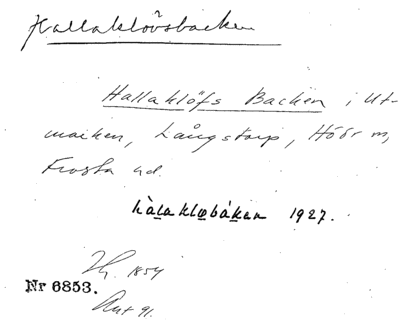 Hallaklövsbacken
Hallaklöfs Backen i Ut-
marken, Långstorp, Höör sn,
Frosta hd.
hàlakløbákən 1927.
1854
Nr 6853.
Ant 91.